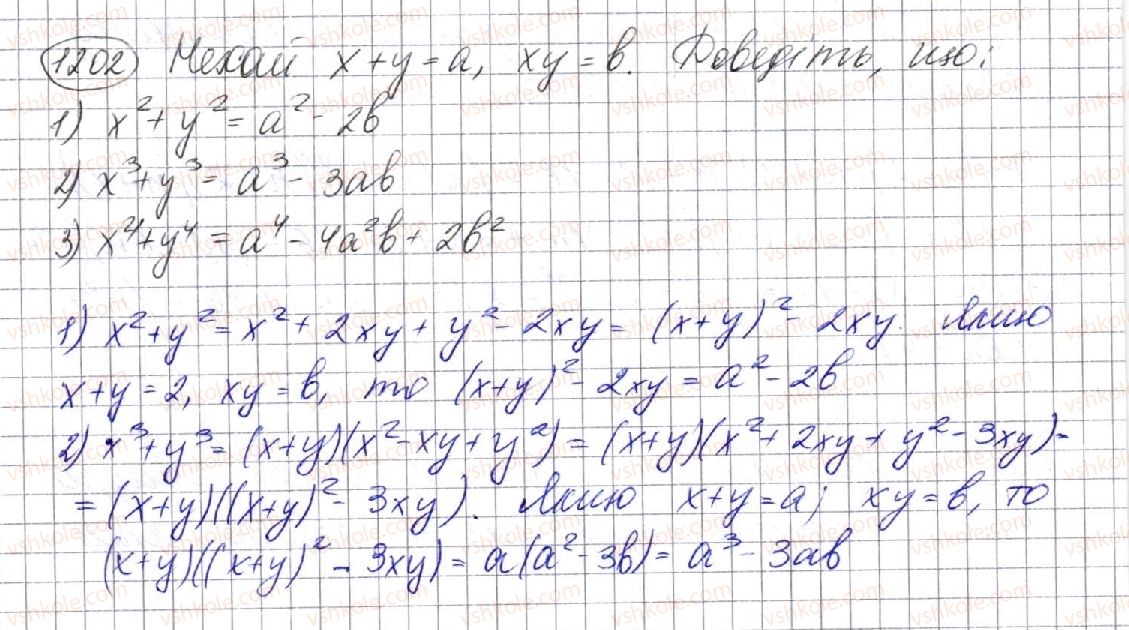 1202 Нехай x + y = a, xy = b. Доведіть, що:
1) x² + y² = a² - 2b
2) x³ + y³ = a³ - 3ab
3) x⁴ + y⁴ = a⁴ - 4a²b + 2b²
1) x² + y² = x² + 2xy + y² - 2xy = (x+y)² - 2xy. Якщо
x + y = 2, xy = b, то (x+y)² - 2xy = a² - 2b
2) x³ + y³ = (x+y)(x² - xy + y²) = (x+y)(x² + 2xy + y² - 3xy) =
= (x+y)((x+y)² - 3xy). Якщо x + y = a; xy = b, то
(x+y)((x+y)² - 3xy) = a(a² - 3b) = a³ - 3ab